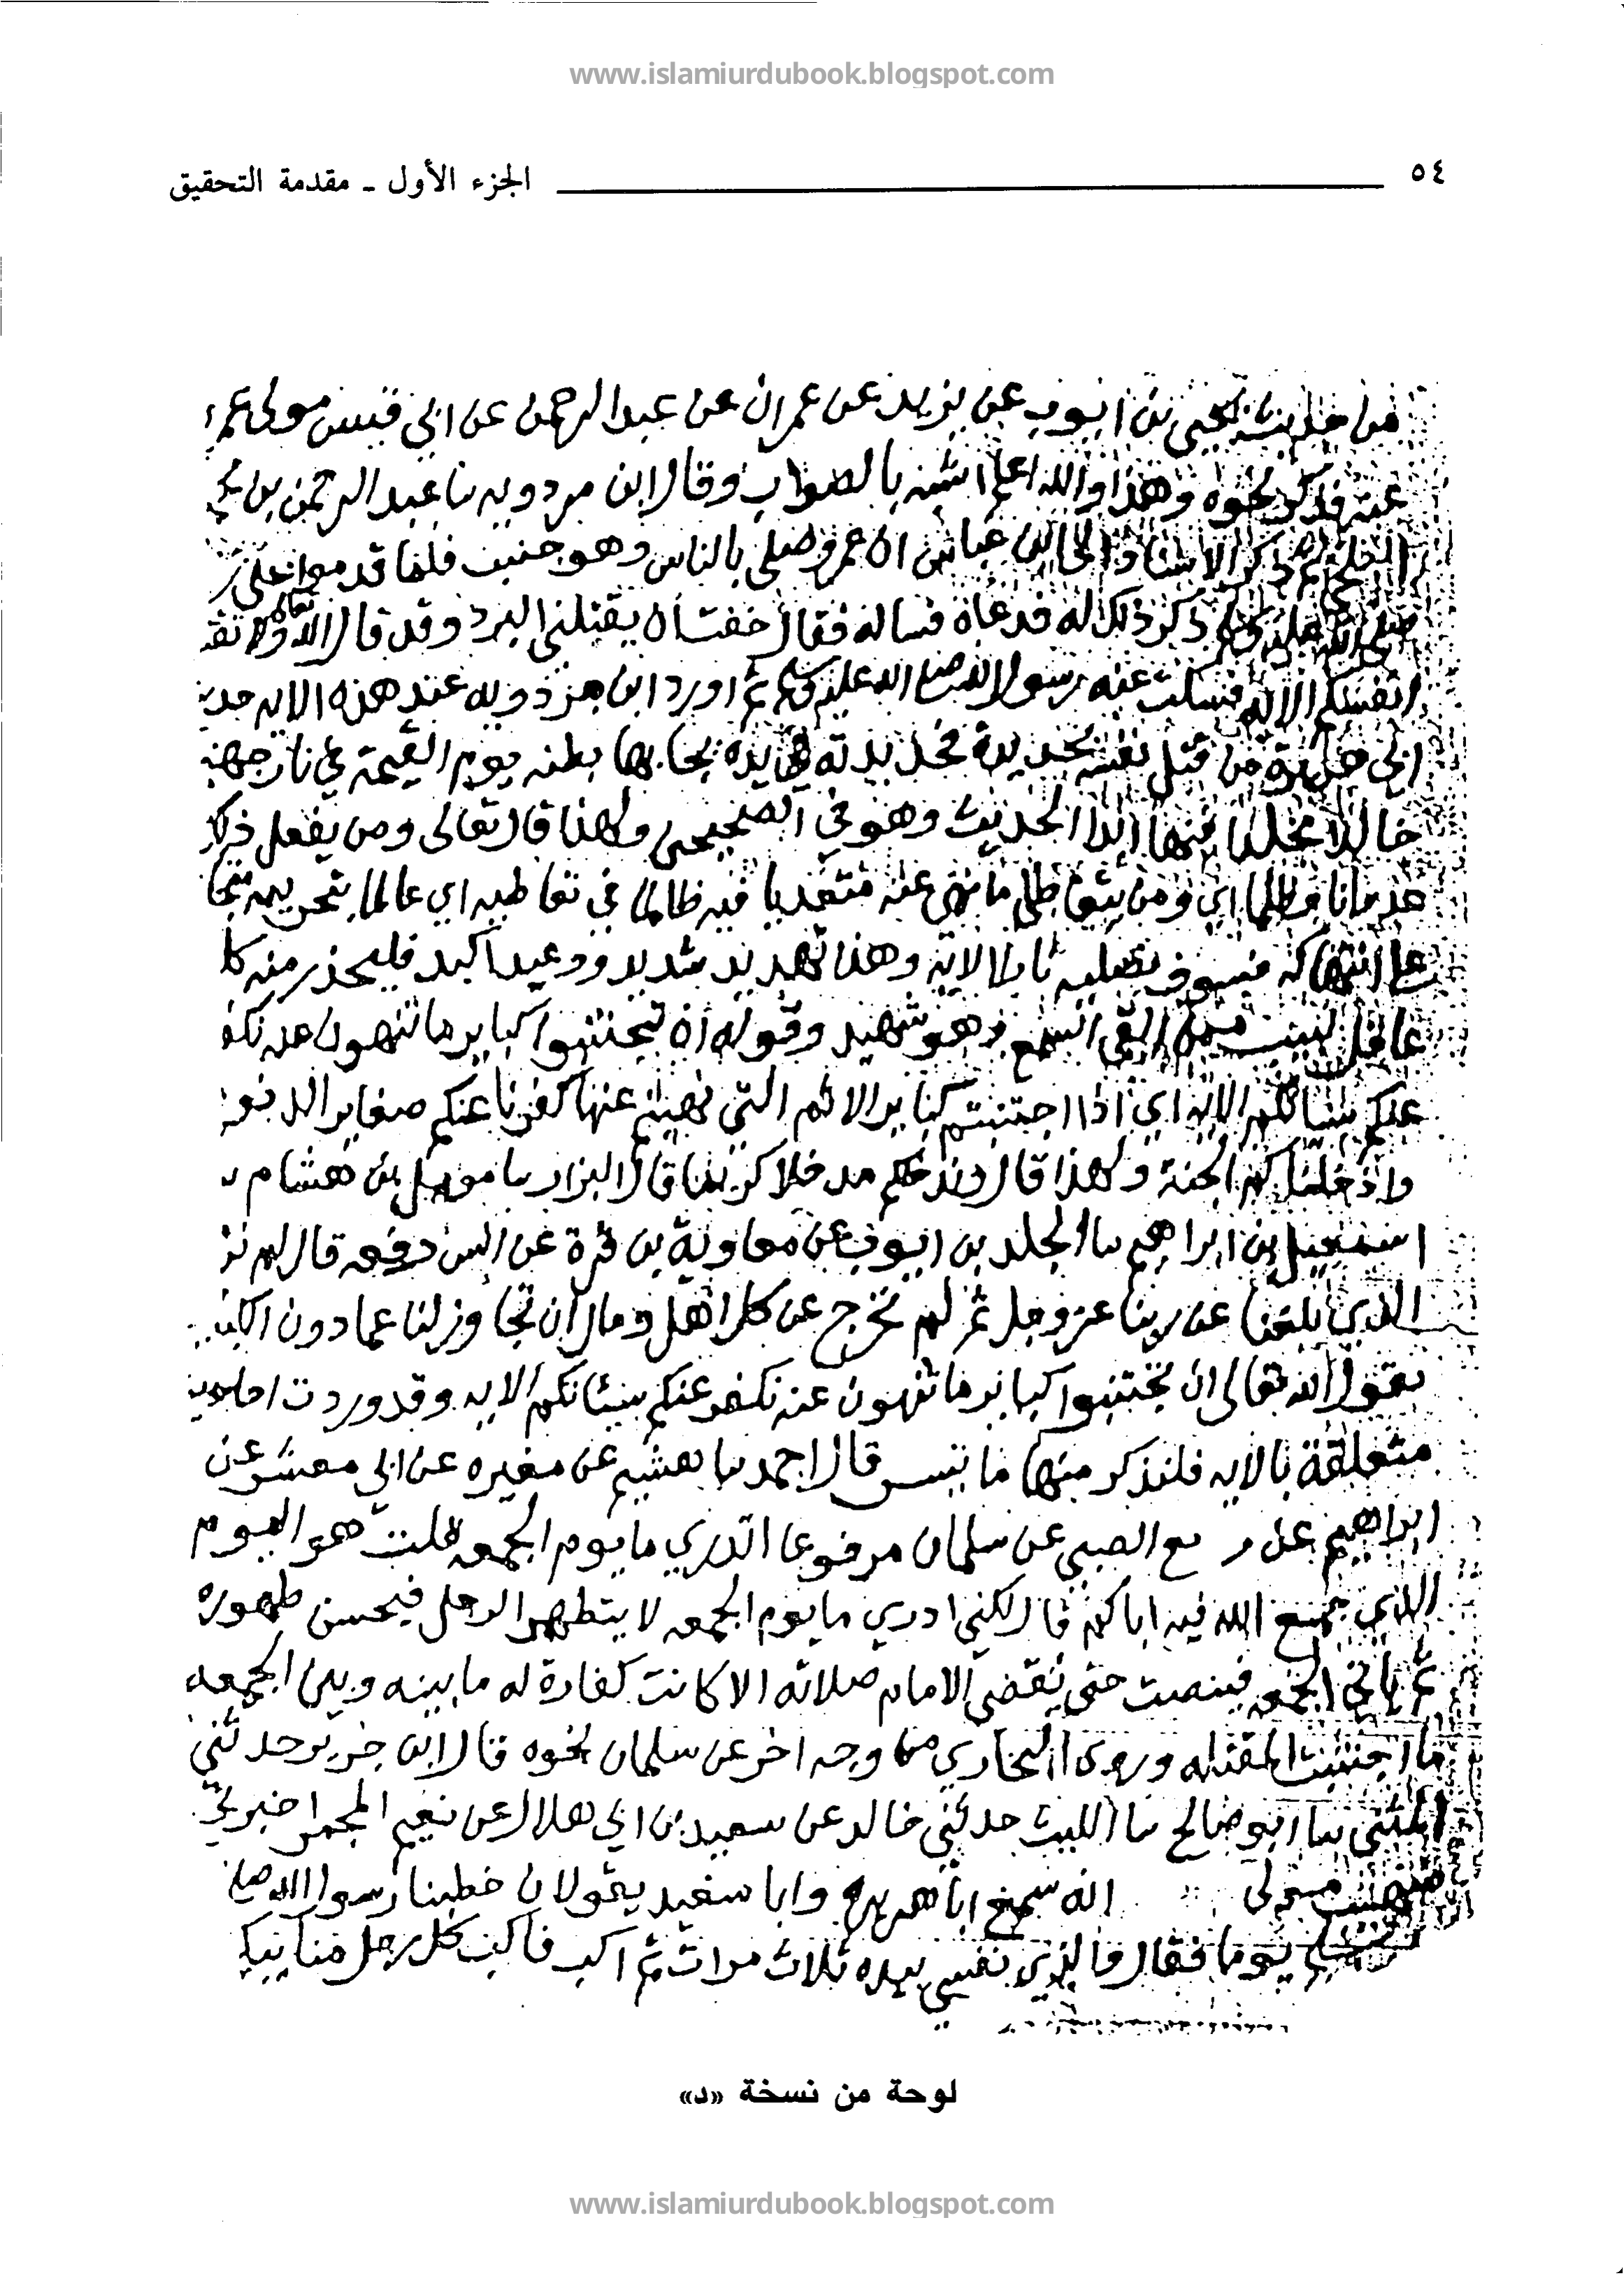 www.islamiurdubook.blogspot.com
٥٤ الجزء الأول - مقدمة التحقيق
من حديث يحيى بن ايوب عن يزيد عن عمران عن عبد الرحمن عن ابي قيس مولى عمر
عنه فذكر نحوه وهذا والله اعلم اشبه بالصواب وقال ابن مردويه ثنا عبد الرحمن بن
ذكر الاسناد الى ابن عباس ان عمرو صلى بالناس وهو جنب فلما قدموا على
صلى الله عليه وسلم ذكر ذلك له فدعاه فساله فقال خفت ان يقتلني البرد وقد قال الله تعالى ولا تقتـ
انفسكم الايه فسكت عنه رسول الله صلى الله عليه وسلم ثم اورد ابن مردويه عند هذه الايه حديث
ابي هريرة من قتل نفسه بحديدة فحديدته في يده يجا بها بطنه يوم القيمة في نار جهنم
خالدا مخلدا فيها ابدا الحديث وهو في الصحيحين ولهذا قال تعالى ومن يفعل ذلك
عدوانا وظلما اي ومن يتعاطى ما نهى عنه متعديا فيه ظالما في تعاطيه اي عالما بتحريمه متجا
على انتهاكه فسوف نصليه نارا الايه وهذا تهديد شديد ووعيد اكيد فليحذر منه كل
عاقل لبيب ممن القى السمع وهو شهيد وقوله ان تجتنبوا كباير ما تنهون عنه نكفر
عنكم سياتكم الايه اي اذا اجتنبتم كباير الاثم التي نهيتم عنها كفرنا عنكم صغاير الذنوب
وادخلناكم الجنة ولهذا قال وندخلكم مدخلا كريما قال البزار ثنا مومل بن هشام
اسمعيل بن ابراهيم ثنا الجلد بن ايوب عن معاوية بن قرة عن انس رفعه قال لم نر
الذي بلغنا عن ربنا عز وجل ثم لم نخرج عن كل اهل ومال ان تجاوز لنا عما دون الكبـ
يقول الله تعالى ان تجتنبوا كباير ما تنهون عنه نكفر عنكم سيئاتكم الايه وقد وردت احاديث
متعلقة بالايه فلنذكر منها ما تيسر قال احمد ثنا هشيم عن مغيره عن ابي معشر عن
ابراهيم عن مع الضبي عن سلمان مرفوعا اتدري ما يوم الجمعه قلت هو اليوم
الذي جمع الله فيه اباكم قال لكني ادري ما يوم الجمعه لا يتطهر الرجل فيحسن طهوره
ثم ياتي الجمعه فينصت حتى يقضي الامام صلاته الا كانت كفارة له ما بينه وبين الجمعه
ما اجتنبت المقتله وروى البخاري من وجه اخر عن سلمان نحوه قال ابن جرير حدثني
المثنى ثنا ابو صالح ثنا الليث حدثني خالد عن سعيد بن ابي هلال عن نعيم المجمر اخبرني
صهيب مولى انه سمع ابا هريرة وابا سعيد يقولان خطبنا رسول الله صلى
يوما فقال والذي نفسي بيده ثلاث مرات ثم اكب فاكب كل رجل منا يبكي
لوحة من نسخة «د»
www.islamiurdubook.blogspot.com